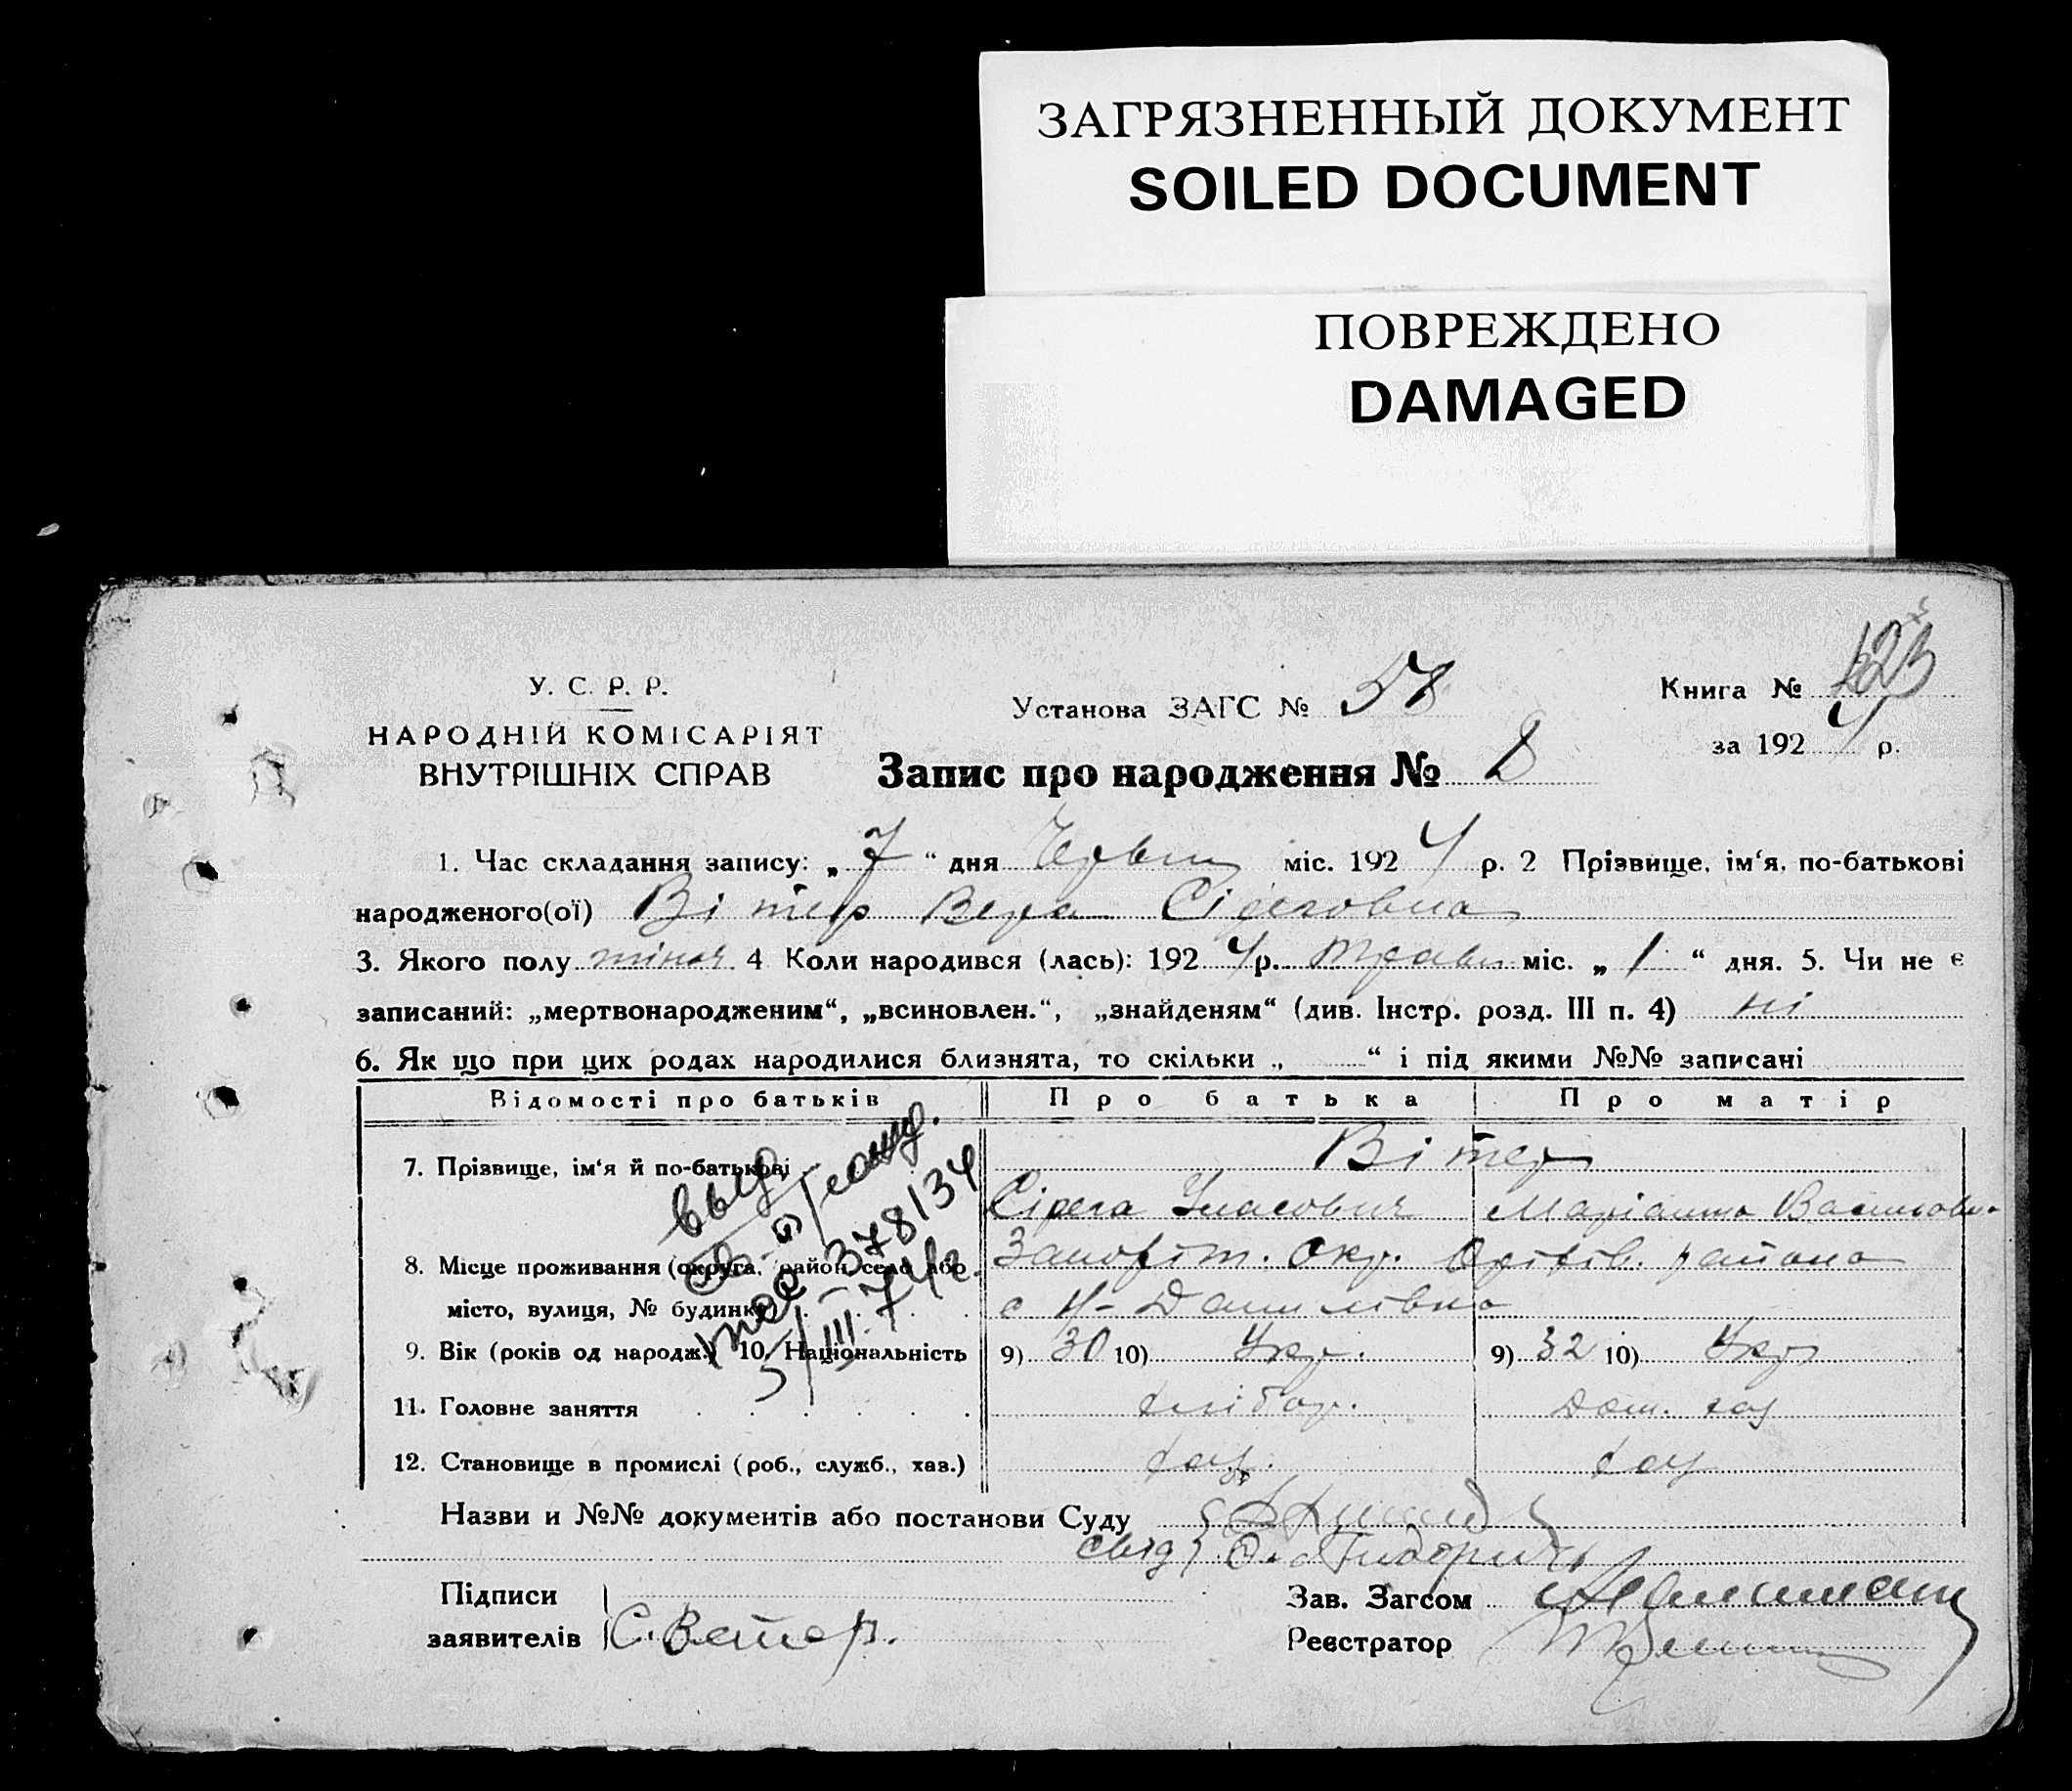 ЗАГРЯЗНЕННЫЙ ДОКУМЕНТ
SOILED DOCUMENT
ПОВРЕЖДЕНО
DAMAGED
У. С. Р. Р.
НАРОДНІЙ КОМІСАРІЯТ
ВНУТРІШНІХ СПРАВ
Установа ЗАГС №
Книга №
за 1924 р.
Запис про народження № 8
1. Час складання запису: „7“ дня Червня міс. 1924 р. 2 Прізвище, ім‘я, по-батькові
народженого(ої) Вітер Вера Сіреговна
3. Якого полу жіноч 4 Коли народився (лась): 1924 р. Травн міс. „1“ дня. 5. Чи не є
записаний: „мертвонародженим“, „всиновлен.“, „знайденям“ (див. Інстр. розд. III п. 4) ні
6. Як що при цих родах народилися близнята, то скільки „ “ і під якими №№ записані
Відомості про батьків Про батька Про матір
7. Прізвище, ім‘я й по-батькові Вітер
Сірега Уласович Маріанна
8. Місце проживання (округа, район, село або Запоріж. окр. Оріхів. района
місто, вулиця, № будинку) с Н-Данилівка
9. Вік (років од народж.) 10. Національність 9) 30 10) Укр. 9) 32 10) Укр
11. Головне заняття хлібор. дом. хаз
12. Становище в промислі (роб., служб., хаз.) хаз. хаз
378/34
5/III-74г.
Назви и №№ документів або постанови Суду
свід
Підписи
заявителів С. Ветер.
Зав. Загсом
Реєстратор